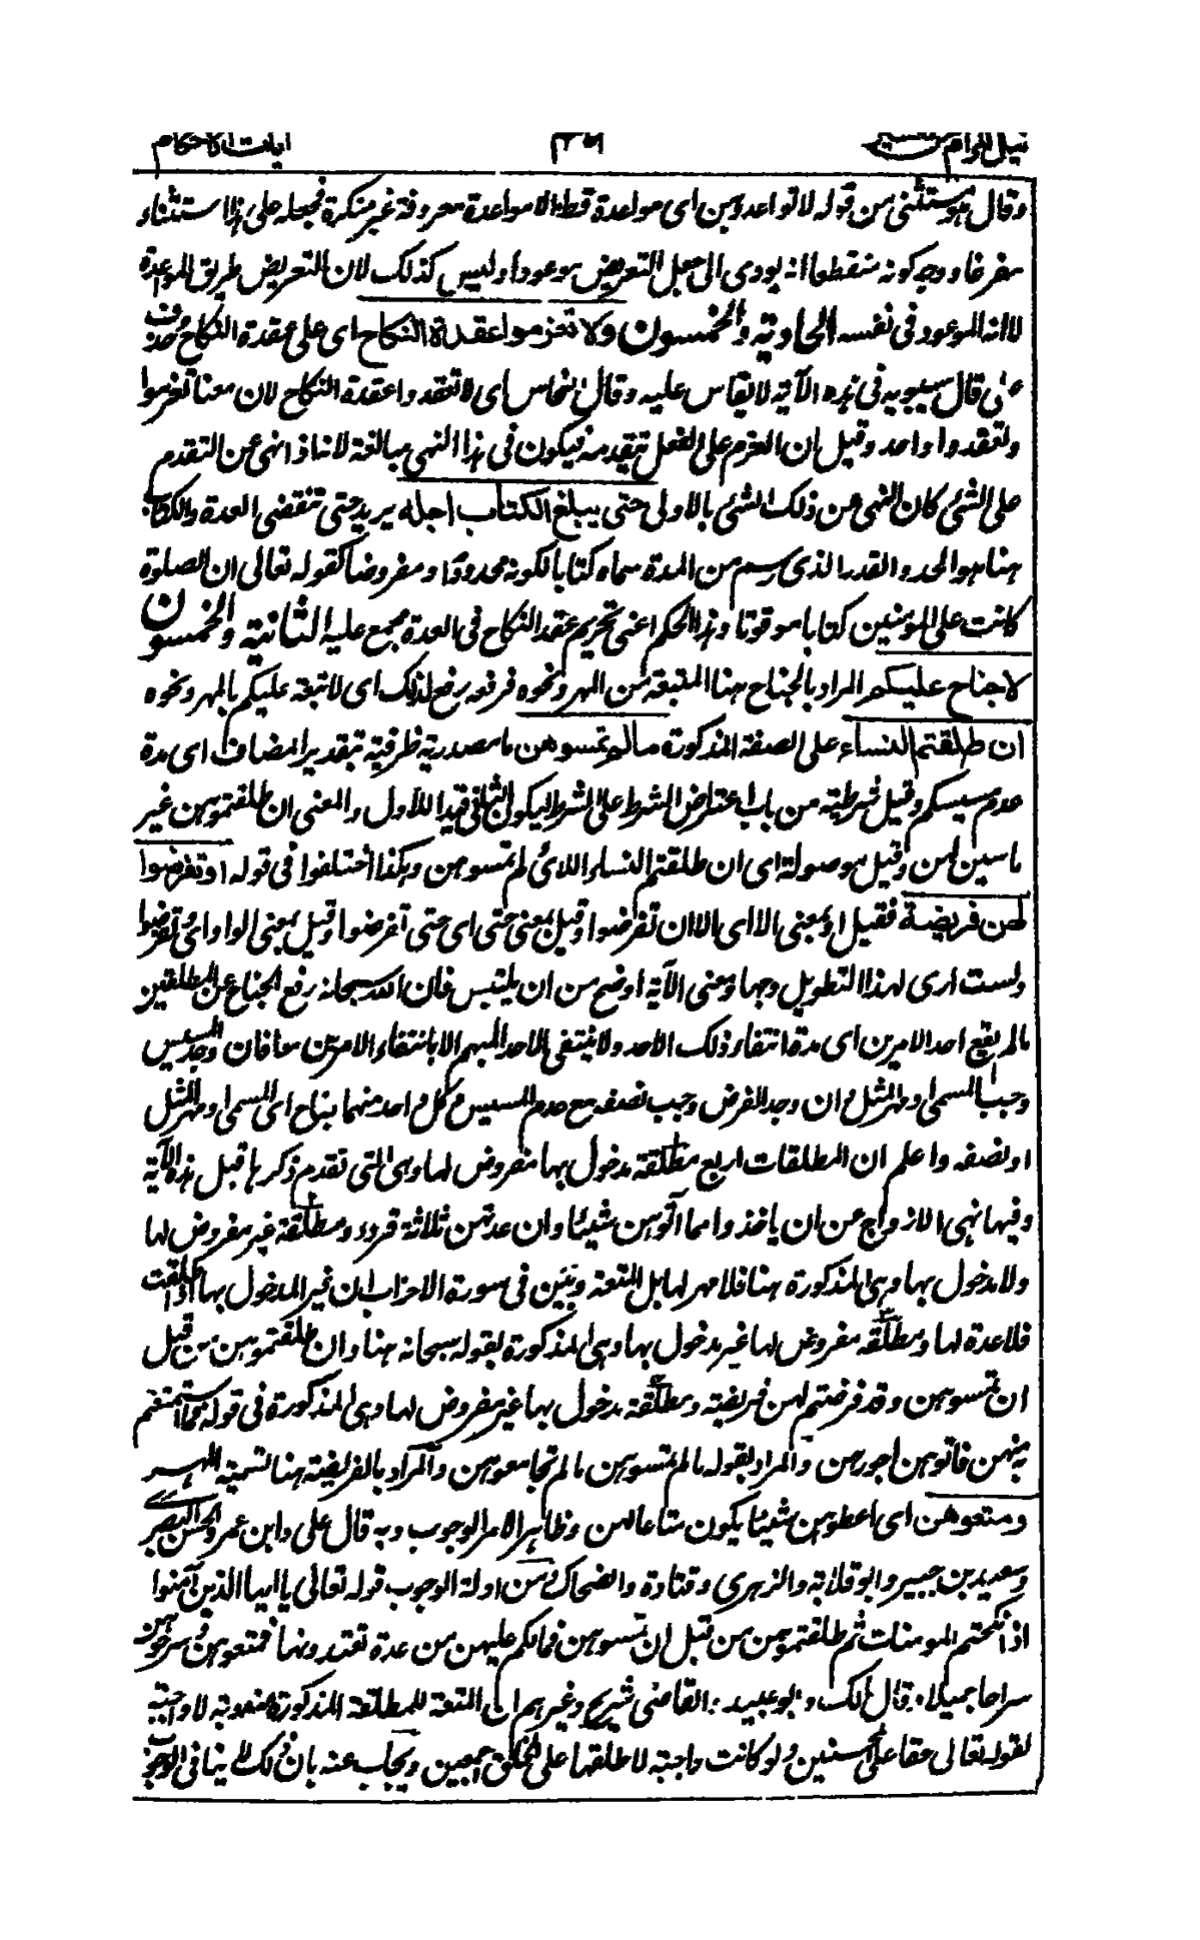 نيل المرام من تفسير ٣٥ آيات الاحكام
وقال هو مستثنى من قوله لا تواعدوهن اى مواعدة قط الا مواعدة معروفة غير منكرة فجعله على هذا استثناء
مفرغا ووجه كونه منقطعا انه يودى الى جعل التعريض موعودا وليس كذلك لان التعريض طريق المواعدة
لا انه الموعود فى نفسه الحادية والخمسون ولا تعزموا عقدة النكاح اى على عقدة النكاح حذف
على قال سيبويه فى هذه الآية لا يقاس عليه وقال النحاس اى لا تعقدوا عقدة النكاح لان معنا تعزموا
وتعقدوا واحد وقيل ان العزم على الفعل يتقدمه فيكون فى هذا النهى مبالغة لانه اذا نهى عن التقدم
على الشئ كان النهى عن ذلك الشئ بالاولى حتى يبلغ الكتاب اجله يريد حتى تنقضى العدة والكتاب
هنا هو الحد والقدر الذى رسم من المدة سماه كتابا لكونه محدودا ومفروضا كقوله تعالى ان الصلوة
كانت على المؤمنين كتابا موقوتا وهذا الحكم اعنى تحريم عقد النكاح فى العدة مجمع عليه الثانية والخمسون
لا جناح عليكم المراد بالجناح هنا التبعة من المهر ونحوه فرفعه رفع لذلك اى لا تبعة عليكم بالمهر ونحوه
ان طلقتم النساء على الصفة المذكورة ما لم تمسوهن ما مصدرية ظرفية بتقدير المضاف اى مدة
عدم مسيسكم وقيل شرطية من باب اعتراض الشرط على الشرط ليكون الثانى قيدا للاول والمعنى ان طلقتموهن غير
ماسين لهن وقيل موصولة اى ان طلقتم النساء اللائى لم تمسوهن وهكذا اختلفوا فى قوله او تفرضوا
لهن فريضة فقيل او بمعنى الا اى الا ان تفرضوا وقيل بمعنى حتى اى حتى تفرضوا وقيل بمعنى الواو اى وتفرضوا
ولست ارى لهذا التطويل وجها ومعنى الآية اوضح من ان يلتبس فان الله سبحانه رفع الجناح عن المطلقين
ما لم يقع احد الامرين اى مدة انتفاء ذلك الاحد ولا ينتفى الاحد المبهم الا بانتفاء الامرين معا فان وجد المسيس
وجب المسمى او مهر المثل وان وجد الفرض وجب نصفه مع عدم المسيس وكل واحد منهما جناح اى المسمى او مهر المثل
او نصفه واعلم ان المطلقات اربع مطلقة مدخول بها مفروض لها وهى التى تقدم ذكرها قبل هذه الآية
وفيها نهى الازواج عن ان ياخذوا مما آتوهن شيئا وان عدتهن ثلاثة قروء ومطلقة غير مفروض لها
ولا مدخول بها وهى المذكورة هنا فلا مهر لها بل المتعة وبين فى سورة الاحزاب ان غير المدخول بها اذا طلقت
فلا عدة لها ومطلقة مفروض لها غير مدخول بها وهى المذكورة بقوله سبحانه هنا وان طلقتموهن من قبل
ان تمسوهن وقد فرضتم لهن فريضة ومطلقة مدخول بها غير مفروض لها وهى المذكورة فى قوله فما استمتعتم
به منهن فاتوهن اجورهن والمراد بقوله ما لم تمسوهن ما لم تجامعوهن والمراد بالفريضة هنا تسمية المهر
ومتعوهن اى اعطوهن شيئا يكون متاعا لهن وظاهر الامر الوجوب وبه قال على وابن عمر والحسن البصرى
وسعيد بن جبير وابو قلابة والزهرى وقتادة والضحاك ومن ادلة الوجوب قوله تعالى يا ايها الذين آمنوا
اذا نكحتم المومنات ثم طلقتموهن من قبل ان تمسوهن فما لكم عليهن من عدة تعتدونها فمتعوهن وسرحوهن
سراحا جميلا وقال مالك وابو عبيد والقاضى شريح وغيرهم ان المتعة للمطلقة المذكورة مندوبة لا واجبة
لقوله تعالى حقا على المحسنين ولو كانت واجبة لاطلقها على الخلق اجمعين ويجاب عنه بان ذلك لا ينافى الوجوب